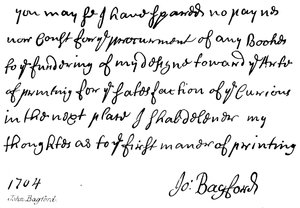 you may se I have spared no paynes
nor Cost for ye procurment of any Bookes
to ye fundering of my designe toward ye Arte
of printing for ye satesfaction of ye Curious
in the next place I shal delever my
thoughtes as to ye first maner of printing
1704 Jo: Bagford
John Bagford.